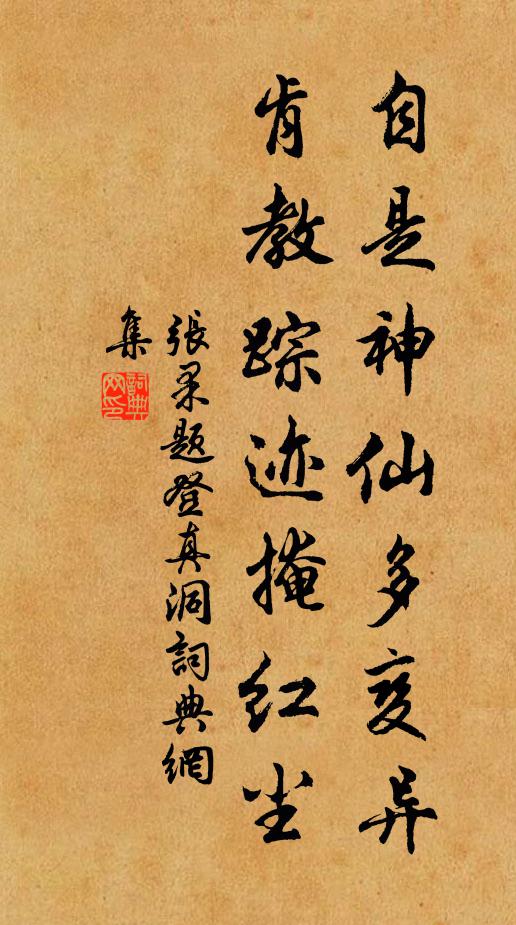 自是神仙多变异
肯教踪迹掩红尘
張果题登真洞詞典網
集
詞典
网印